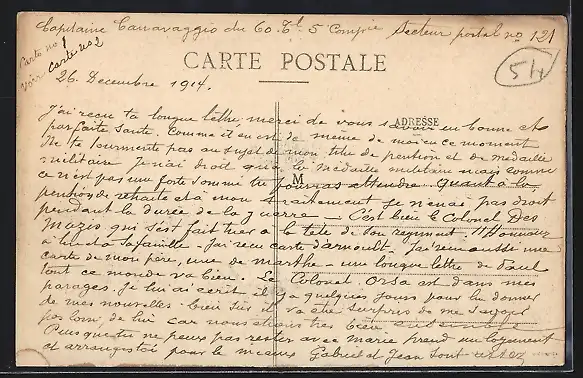 Capitaine Canavaggio du 60 Tal 5 Compie Secteur postal no 121
Carte no 1
voir carte no 2
54
CARTE POSTALE
26. Decembre 1914.
ADRESSE
M
J'ai recu ta longue lettre, merci de vous savoir en bonne et
parfaite santé. Comme il en est de meme de moi en ce moment
Ne te tourmente pas au sujet de mon titre de pention et de medaille
militaire Je n'ai droit qu'a la medaille militaire mais comme
ce n'est pas une forte somme tu pourras attendre. Quant à la
pention de retraite et à mon traitement je n'en ai pas droit
pendant la durée de la guerre — C'est bien le Colonel Des
Mazis qui s'est fait tuer a la tete de son regiment !! Honneur
à lui et à sa famille - J'ai recu carte d'arnoult. J'ai recu aussi une
carte de mon père, une de marthe - une longue lettre de Paul
tout ce monde va bien. Le Colonel Orsa est dans mes
parages. Je lui ai ecrit il y a quelques jours pour lui donner
de mes nouvelles. bien sur il va etre surpris de me savoir
pas loin de lui car nous etions tres bien ensemble
Puisque tu ne peux pas rester avec marie prend un logement
et arranges toi pour le mieux Gabriel et Jean sont assez